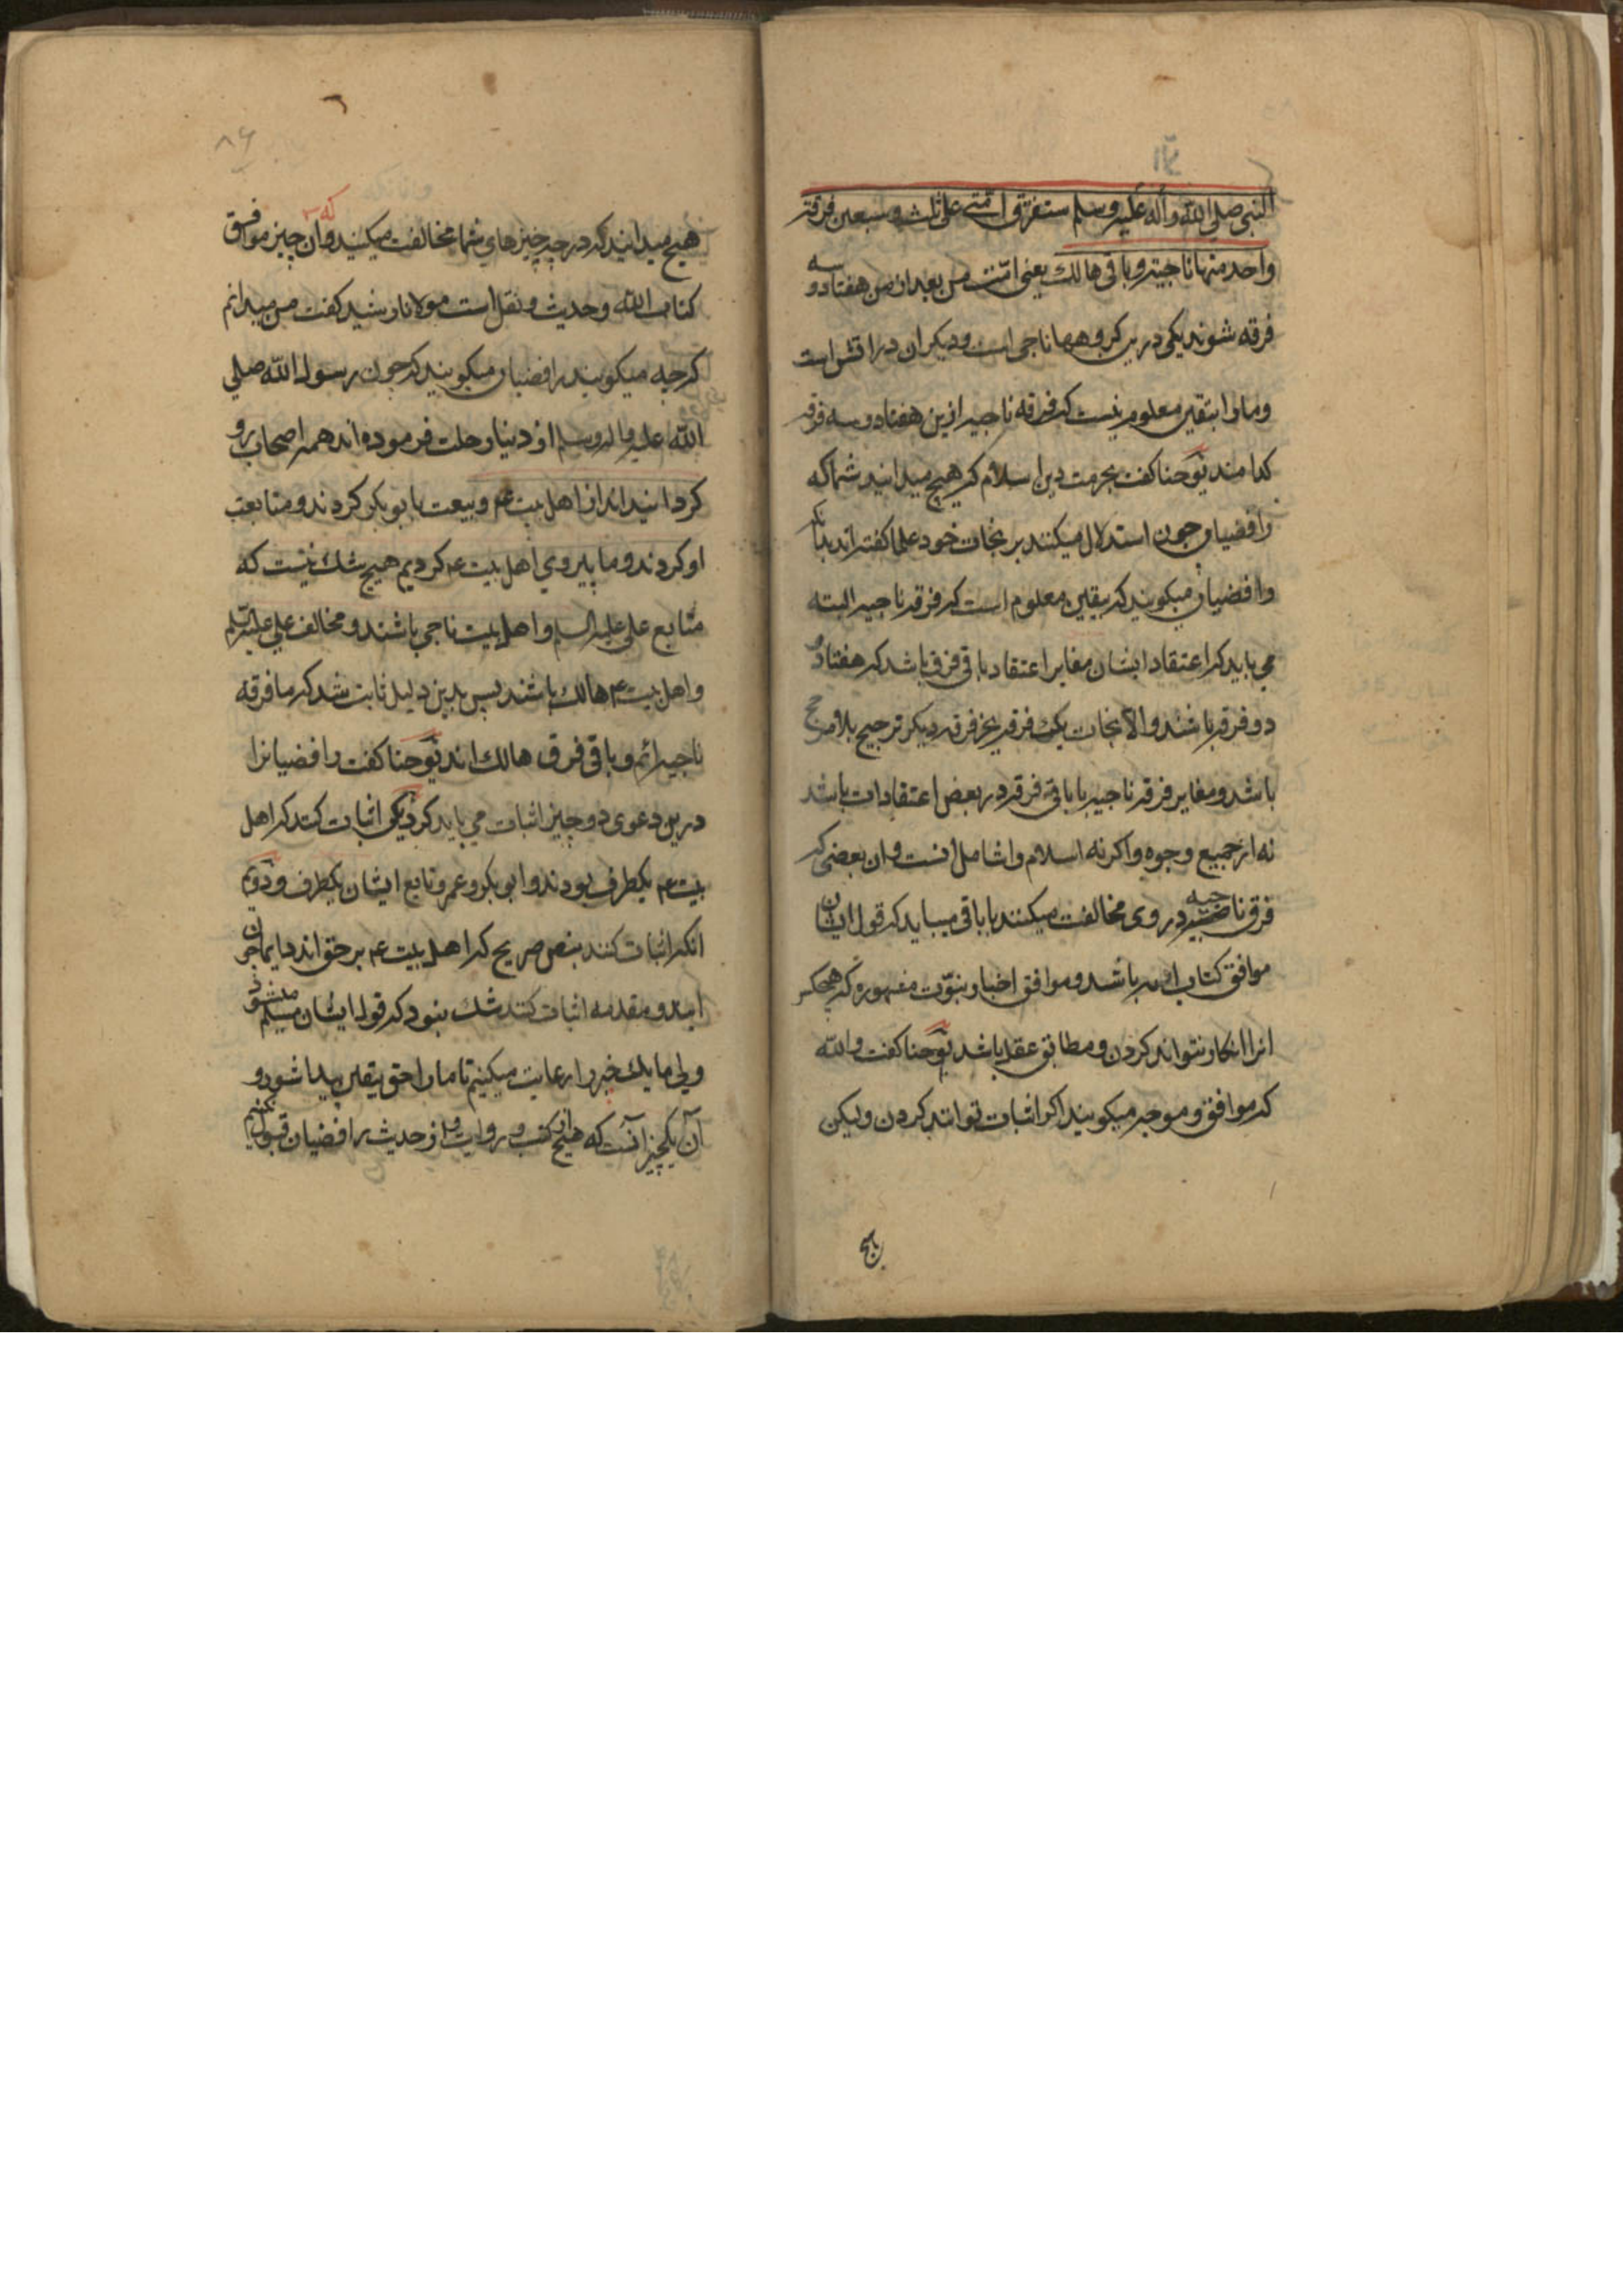 النبی صلی الله وآله علیه وسلم ستفترق امتی علی ثلث وسبعین فرقة
واحد منها ناجیة وباقی هالك یعنی امت من بعد از من هفتاد و سه
فرقه شوند یکی درین کروهها ناجی است ودیکران در اتش است
ومارا بیقین معلوم نیست که فرقه ناجیه ازین هفتاد و سه فرقه
کدامند یوحنا کفت بحرمت دین اسلام که هیچ میدانید شما که
رافضیان چون استدلال میکنند بر نجات خود علما کفته‌اند بدانکه
رافضیان میکویند که بیقین معلوم است که فرقه ناجیه البته
می باید که اعتقاد ایشان مغایر اعتقاد باقی فرق باشد که هفتاد و
دو فرقه باشند والا نجات یک فرقه بغیر فرقه دیکر ترجیح بلا مرجح
باشد و مغایر فرقه ناجیه با باقی فرقه در بعض اعتقادات باشد
نه از جمیع وجوه واکر نه اسلام را شامل است وان بعضی که
فرق ناجیه در وی مخالفت میکنند با باقی میباید که قول ایشان
موافق کتاب الله باشد وموافق اخبار نبوت مشهوره که هیچکس
انرا انکار نتواند کردن و مطابق عقل باشد یوحنا کفت والله
که موافق و موجه میکویند اکر اثبات توانند کردن ولیکن
هیچ
۸۶
هیچ میدانید که در چه چیزهای شما مخالفت میکنند که وآن چیز موافق
کتاب الله وحدیث ونقل است مولانا رشید کفت من میدانم
که چه میکویند رافضیان میکویند که چون رسول الله صلی
الله علیه واله وسلم از دنیا رحلت فرموده‌اند همه اصحاب رو
کردانیدند از اهل بیت ع م وبیعت با بوبکر کردند ومتابعت
او کردند وما پیروی اهل بیت ع م کردیم هیچ شك نیست که
متابع علی علیه السلم واهل بیت ناجی باشند ومخالف علی علیه السلم
واهل بیت ع م هالك باشند پس بدین دلیل ثابت شد که ما فرقه
ناجیه‌ایم وباقی فرق هالك اند یوحنا کفت رافضیانرا
درین دعوی دو چیز اثبات می باید کرد یکی اثبات کنند که اهل
بیت ع م یکطرف بودند وابوبکر وعمر وتابع ایشان یکطرف ودویم
انکه اثبات کنند بنص صریح که اهل بیت ع م بر حق اند
این دو مقدمه اثبات کنند شك نبود که قول ایشان مسلم میشود
ولی ما یك خبر را رعایت میکنیم تا مارا حق بیقین پیدا شود و
آن یکچیز آنست که هیچ از کتب و روایت واز حدیث رافضیان قبول